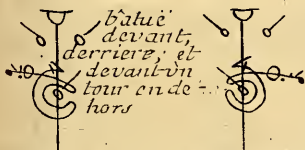 bâtuë
devant,
derriere, et
devant un
tour en de-
hors